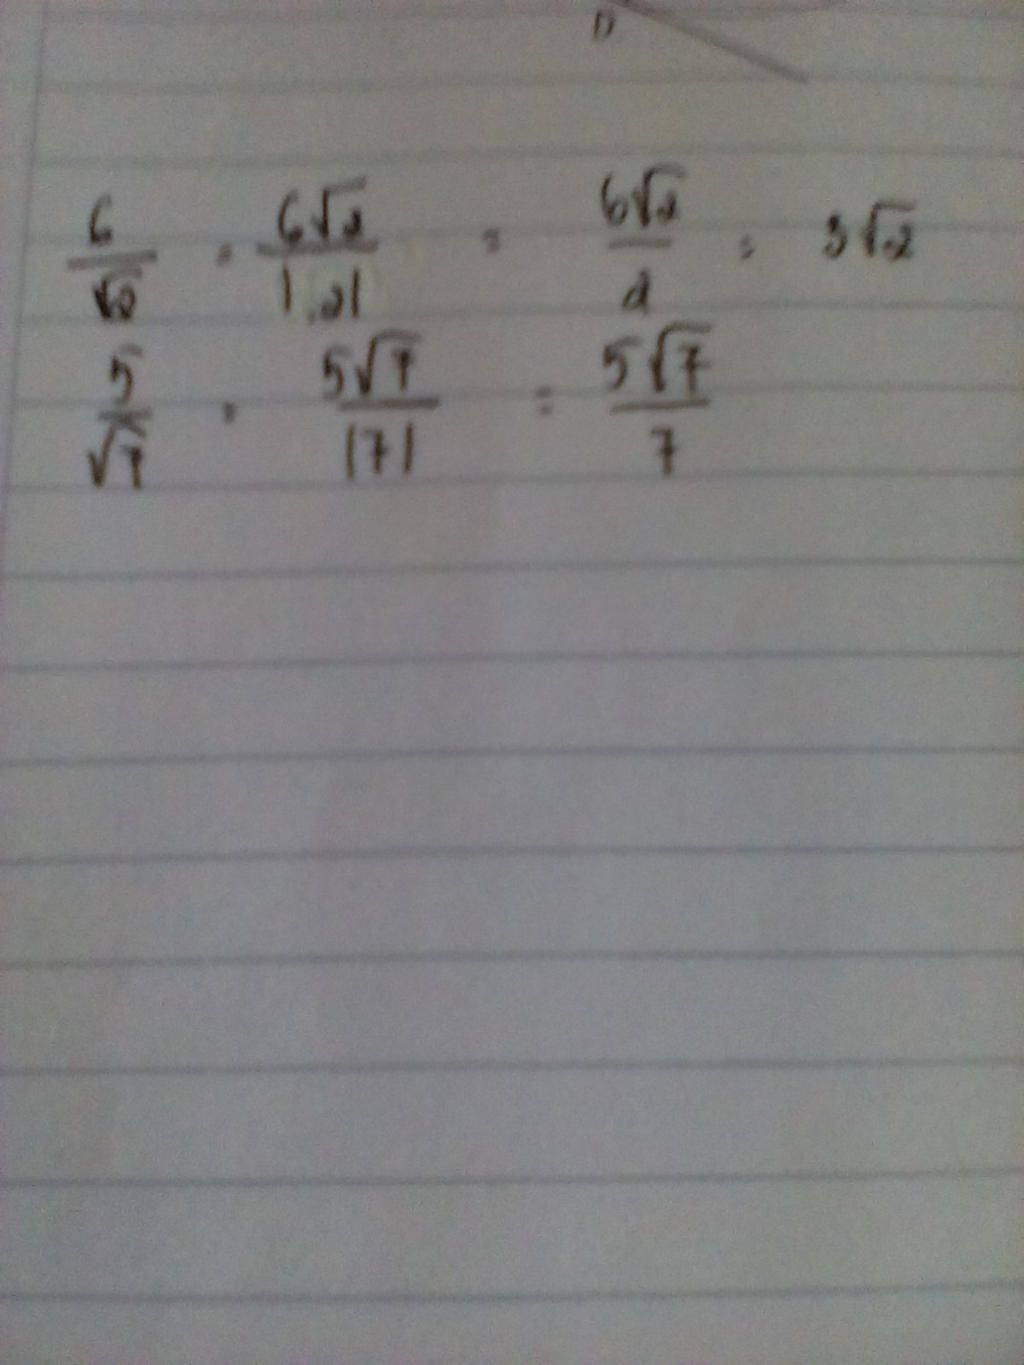 D
6/√2 = 6√2/|2| = 6√2/2 = 3√2
5/√7 = 5√7/|7| = 5√7/7